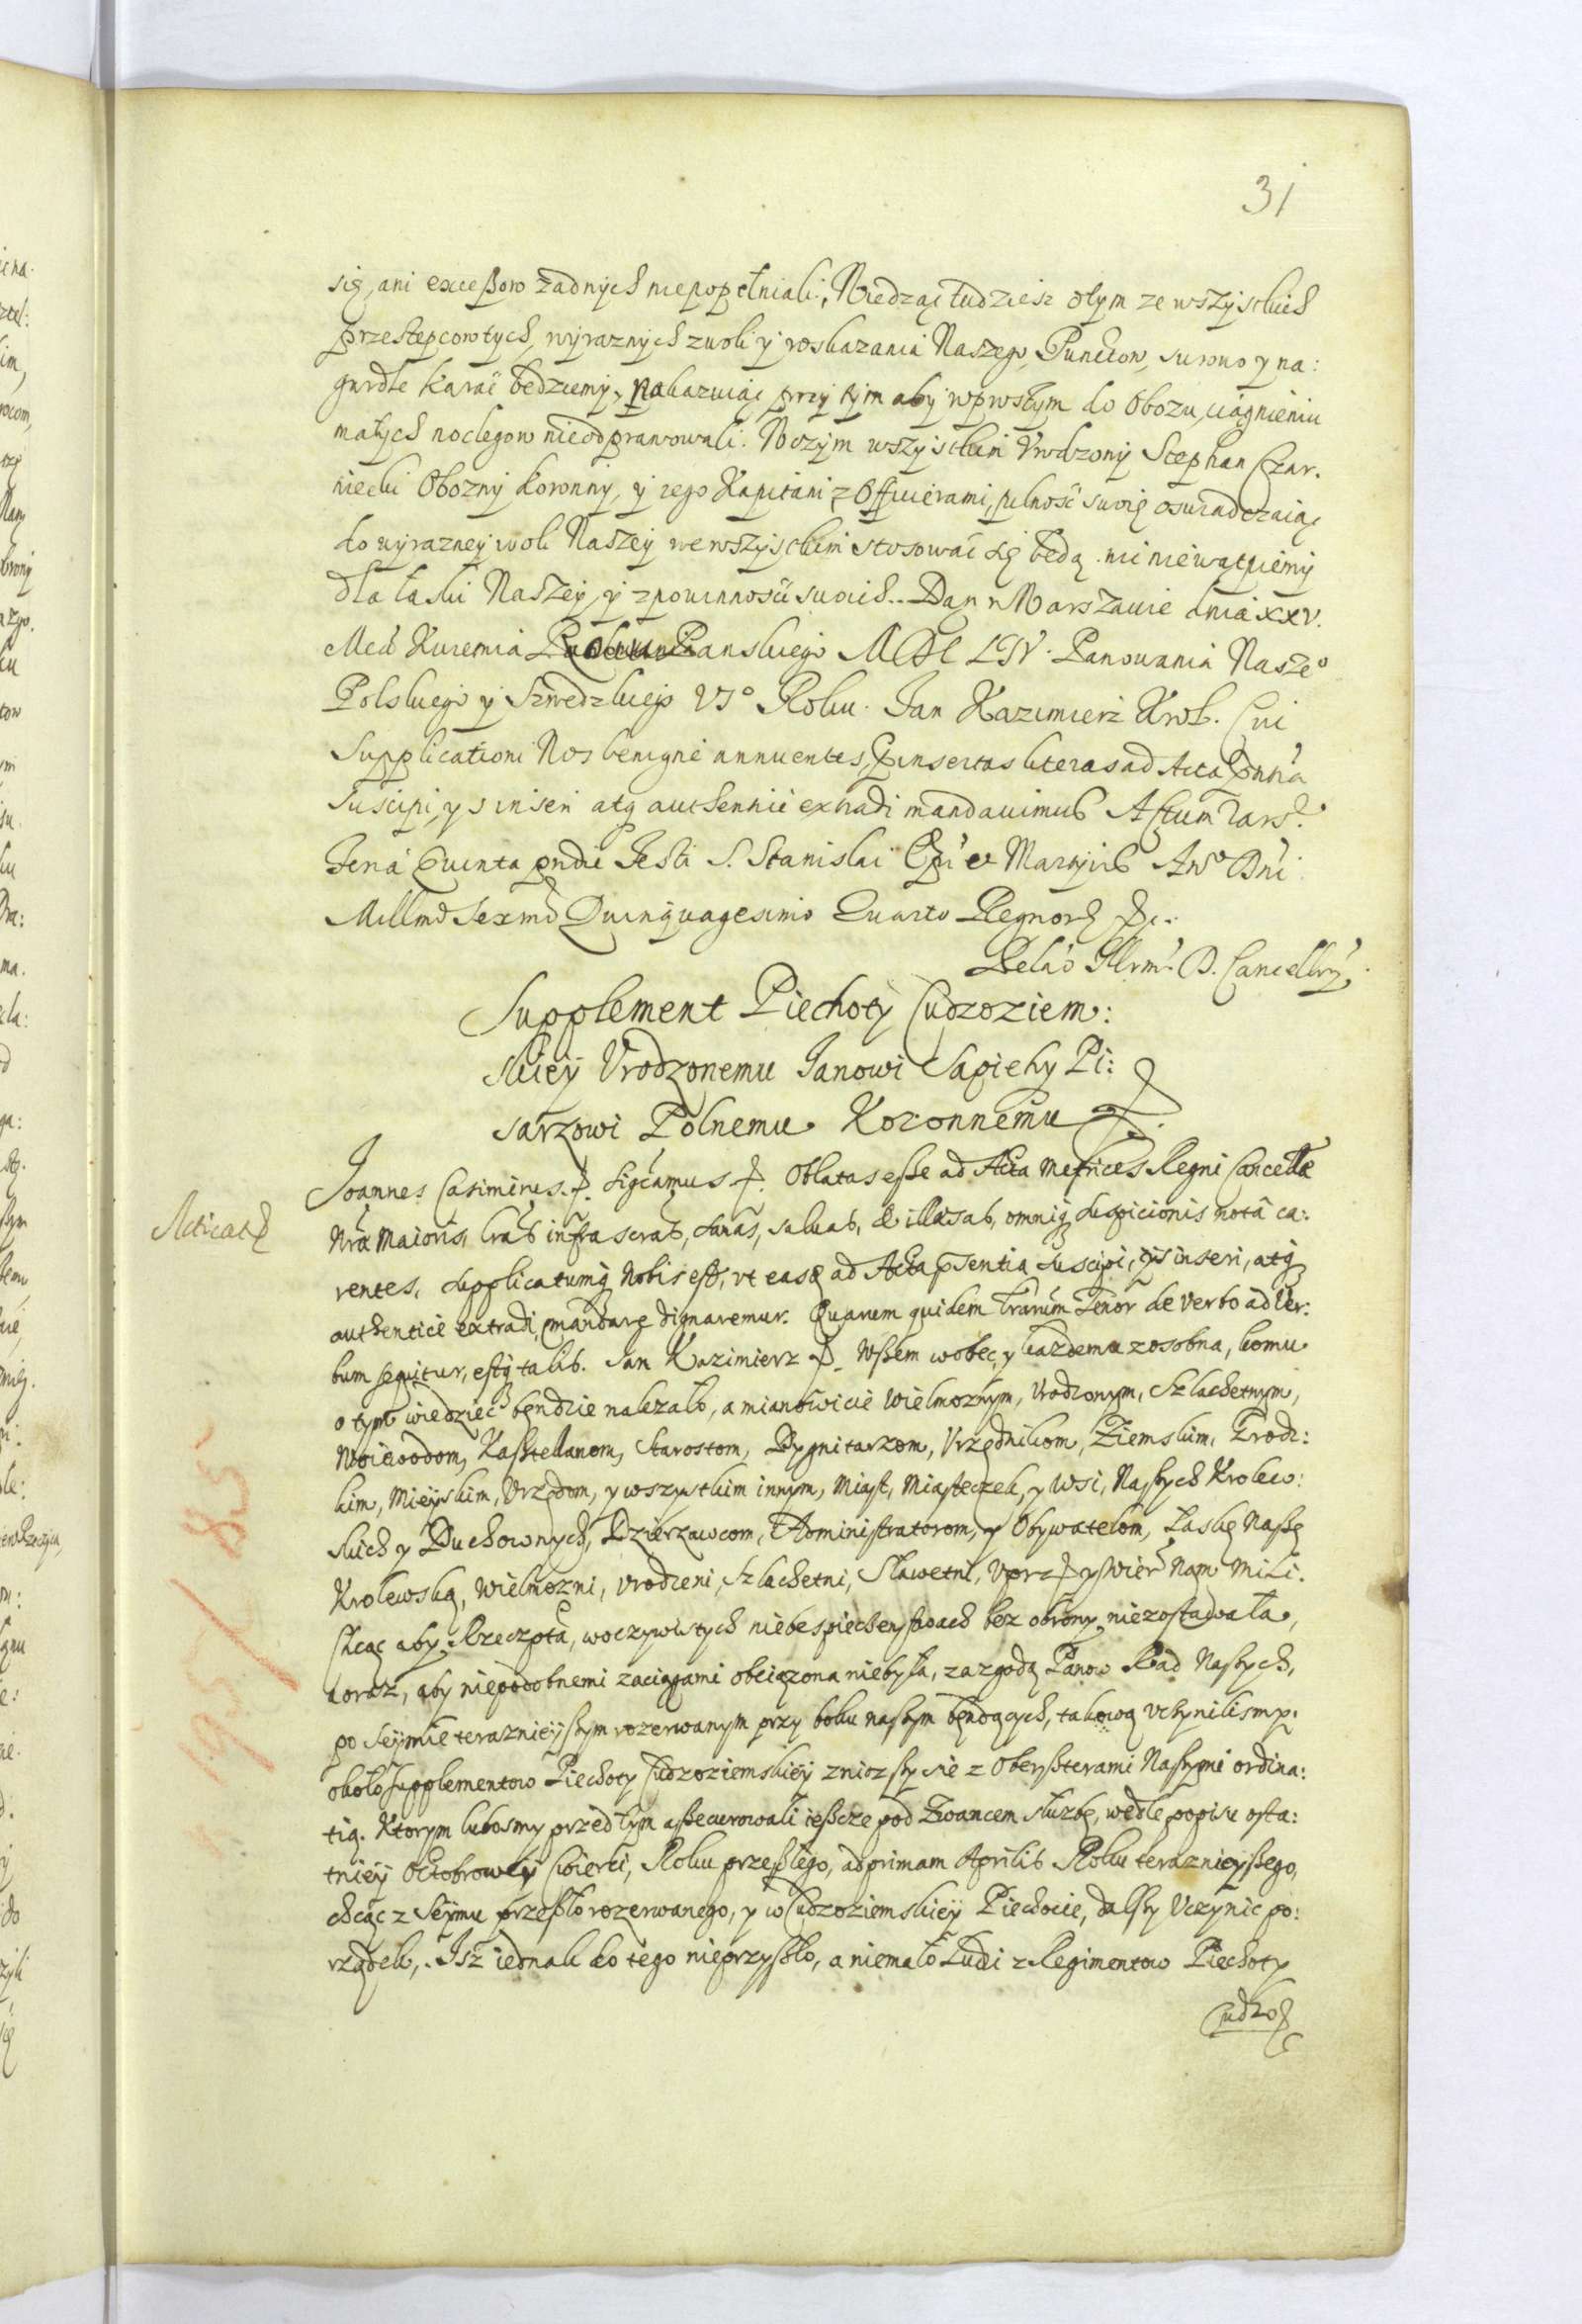 31
się, ani exceßow żadnych niepopełniali, Wiedząc tudziesz otym ze wszystkich
przestępcow tych, wyraznych z woli y roskazania Naszego, Punctow, surowo y na:
gardle karać będziemy, Nakazuiąc przy tym aby w pirwszym do Obozu, ciągnieniu
małych noclegow nieodprawowali. W czym wszystkim Vrodzony Stephan Czar.
niecki Obozny Koronny, y iego Kapitani z Officierami, pilność swoię oswiadczaiąc
do wyrazney woli Naszey we wszystkim stosować się będą. ni niewątpiemy
dla łaski Naszey, y z powinnosci swoich. Dan w Warszawie dnia XXV.
Mca Kwietnia Panskiego MDCLIV. Panowania Naszeo
Polskiego y Szwedzkiego VIo Roku. Jan Kazimierz Krol. Cui
Supplicationi Nos benigne annuentes, pinsertas literas ad Acta pntia
suscipi, ys inseri atq authentice extradi mandauimus Actum Vars.
Feria Quinta pridie Festi S. Stanislai Epi et Martyris Ano Dni
Millmo Sexmo Quinquagesimo Quarto Regnor &c.
Relao Illrmi D. Cancellry
Supplement Piechoty Cudzoziem:
skiey Vrodzonemu Janowi Sapiehy Pi:
sarzowi Polnemu Koronnemu
Joannes Casimirus. Sigcamus. Oblatas eße ad Acta Metrices Regni Cancellæ
Acticat
Nræ Maioris, lras infrascras, sanas, saluas, et illæsas, omniq suspicionis nota ca:
rentes, supplicatumq Nobis est, vt easq ad Acta psentia suscipi, ijs inseri, atq
authentice extradi, mandare dignaremur. Quarum quidem lrarum Tenor de verbo ad Ver:
bum sequitur, estq talis. Jan Kazimierz. Wßem wobec, y kazdemu zosobna, komu
o tym wiedziec będzie nalezało, a mianowicie Wielmoznym, Vrodzonym, Szlachetnym,
Woiewodom, Kasztellanom, Starostom, Dygnitarzom, Vrzędnikom, Ziemskim, Grodz:
kim, Mieyskim, Vrzędom, y wszystkim innym, Miast, Miasteczek, y Wsi, Naszych Krolew:
skich y Duchownych, Dzierzawcom, Administratorom, y Obywatelom, Łaskę Naßę
Krolewską, Wielmozni, Vrodzeni, Szlachetni, Sławetni, Vprz y Wier Nam Mili.
Chcąc aby Rzeczpta, w oczywistych niebespieczenstwach bez obrony niezostawała,
a oraz, aby niepodobnemi zaciągami obciązona niebyła, za zgodą Panow Rad Naszych,
po Seymie teraznieyszym rozerwanym przy boku naszym będących, takową vczynilismy.
około supplementow Piechoty Cudzoziemskiey zniozszy sie z Obersterami Naszymi ordina:
tią. Ktorym lubosmy przed tym assecurowali iescze pod Zwancem słuzbę, wedle popisu osta:
tniey Octobrowey Cwierci, Roku przeßłego, ad primam Aprilis Roku teraznieyßego,
chcąc z Seymu przeßło rozerwanego, y w Cudzoziemskiey Piechocie, dalszy Vczynic po:
rządek,. Isz iednak do tego nieprzyßło, a niemało Ludzi z Regimentow Piechoty
Cudzo